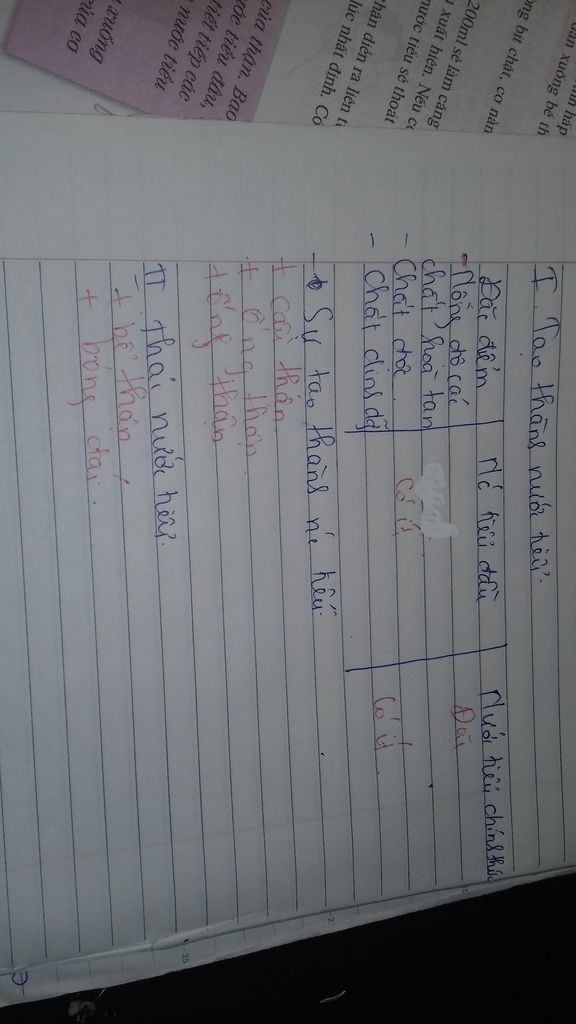 của thận. Bao
nước tiểu đầu,
tiết tiếp các
nước tiểu
t xuống
của co
200ml sẽ làm căng
xuất hiện. Nếu c
nước tiểu sẽ thoát
thận diễn ra liên t
lúc nhất định. Có
ng bụt chất, co nằn
I. Tạo thành nước tiểu.
Đặc điểm | Nc tiểu đầu | Nước tiểu chính thức
- Nồng độ các | Đặc
chất hoà tan
- Chất độc | Có ít
- Chất dinh dg | Có ít
- Sự tạo thành nc tiểu.
+ Cầu thận
+ ống thận.
+ ống thận
II thải nước tiểu.
+ bể thận
+ bóng đái.